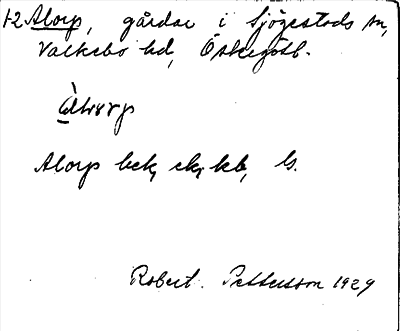 1-2 Alorp, gårdar i Sjögestads sn,
Valkebo hd, Östergötl.
Alorp bek, ek, kb, ls.
Robert Pettersson 1929